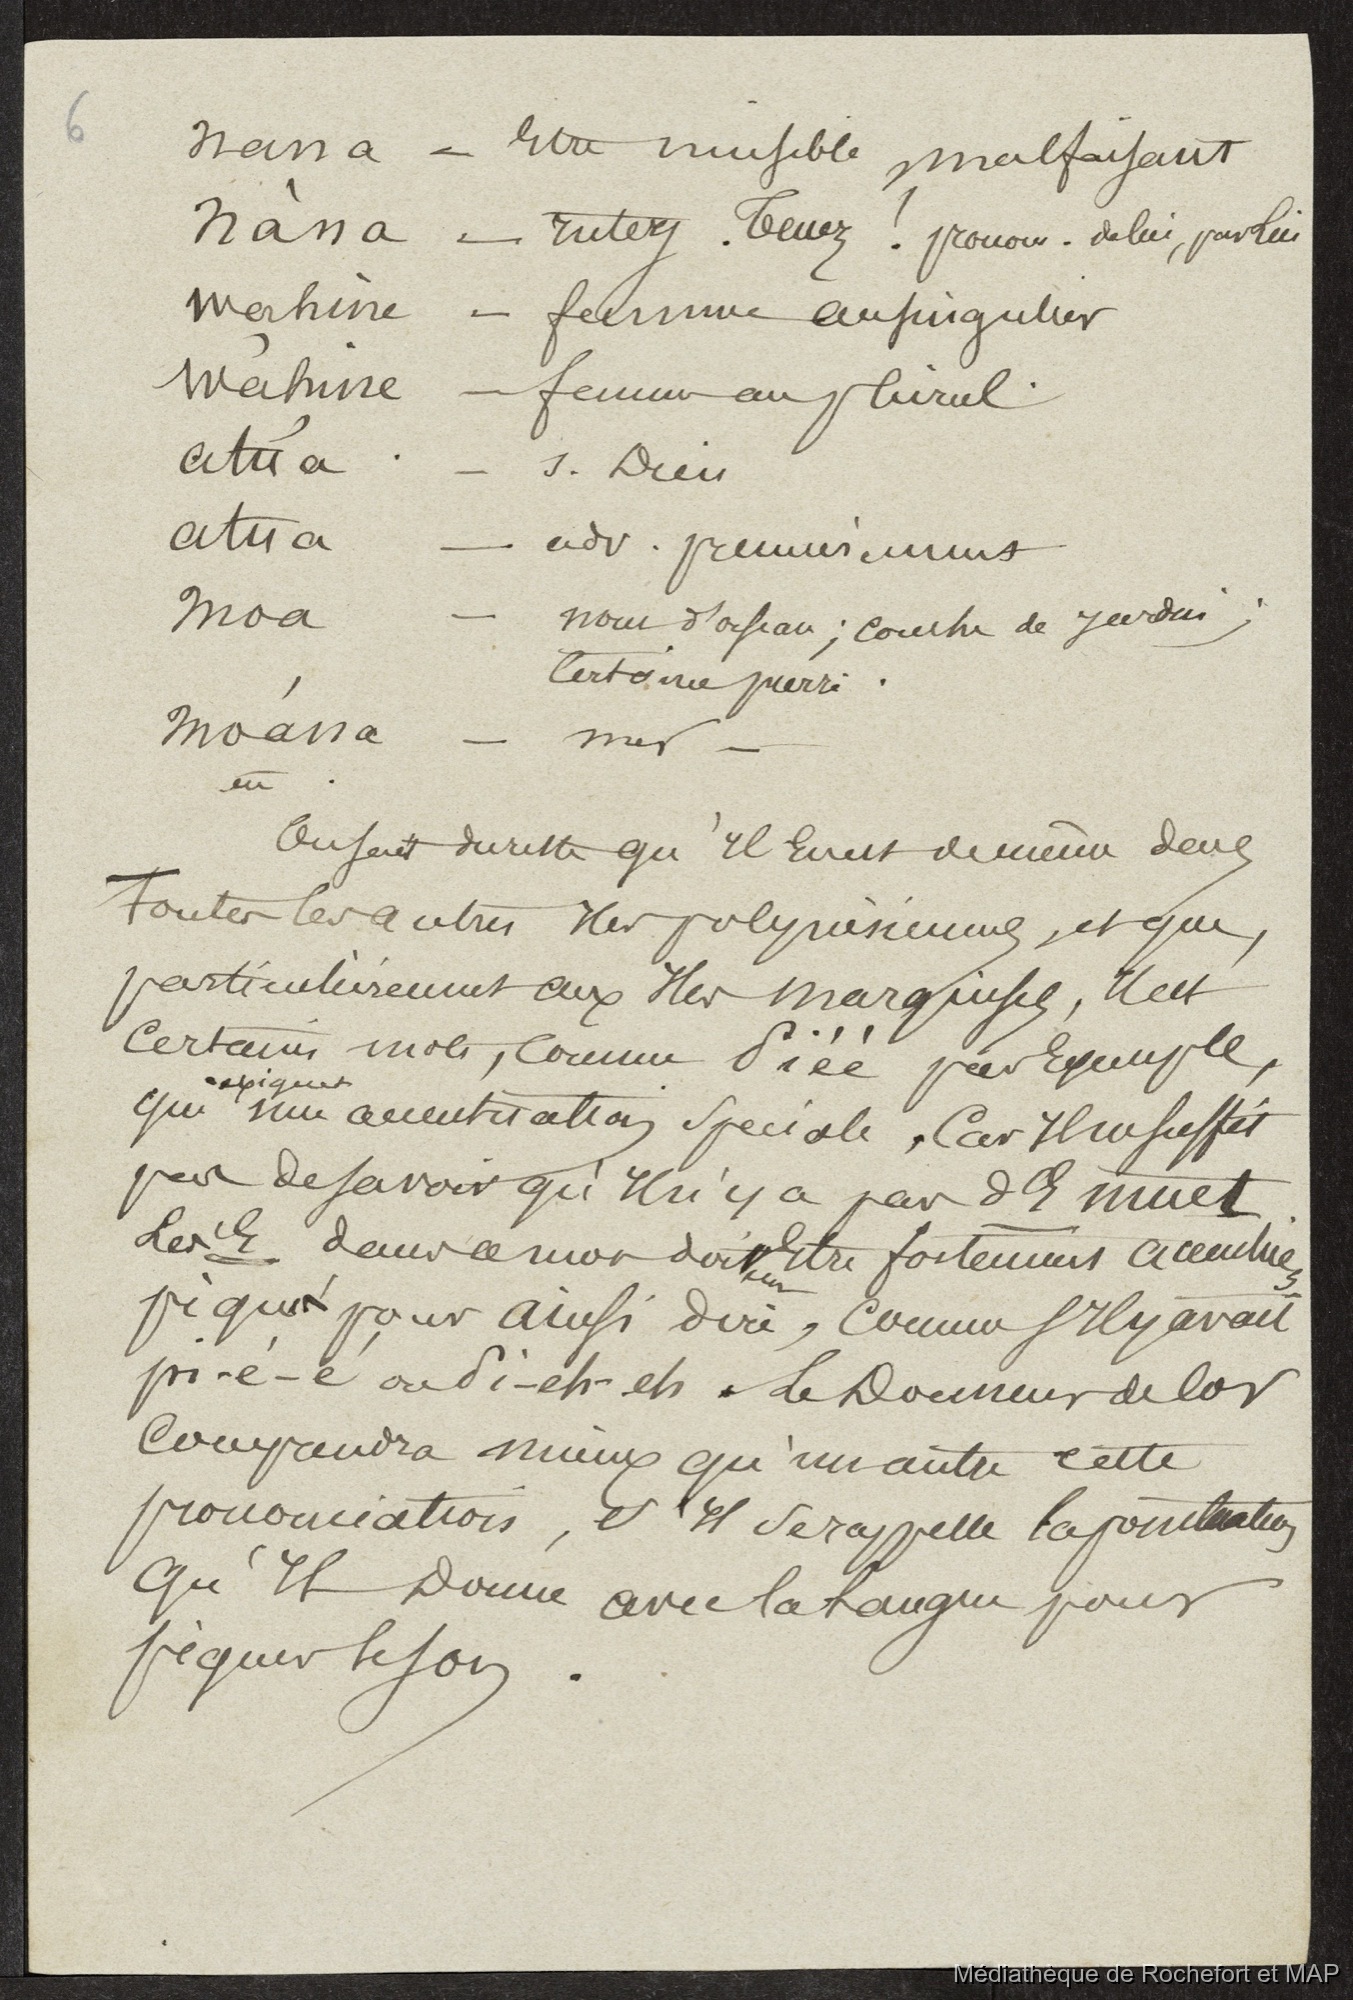 6
nana – être nuisible, malfaisant
nàna – interj. Tenez ! pronom. de lui, par lui
wahine – femme au singulier
wáhine – femme au pluriel.
atúa – s. Dieu
atua – adv. premièrement
moa – nom d'oiseau ; couche de jardin ;
certaine pierre.
moána – mer –
en
On sait du reste qu'il en est de même dans
toutes les autres îles polynésiennes, et que,
particulièrement aux îles marquises, il est
certains mots, comme Piéé par exemple,
exigent
qui une accentuation spéciale. Car il ne suffit
pas de savoir qu'il n'y a pas d'E muet
Les E dans ce mot doivent être fortement accentués
piqués pour ainsi dire, comme s'il y avait
pi-é-é ou Pi-eh-eh. Le Donneur de Cor
comprendra mieux qu'un autre cette
prononciation, s'il se rappelle la ponctuation
qu'il donne avec la langue pour
piquer le son.
Médiathèque de Rochefort et MAP